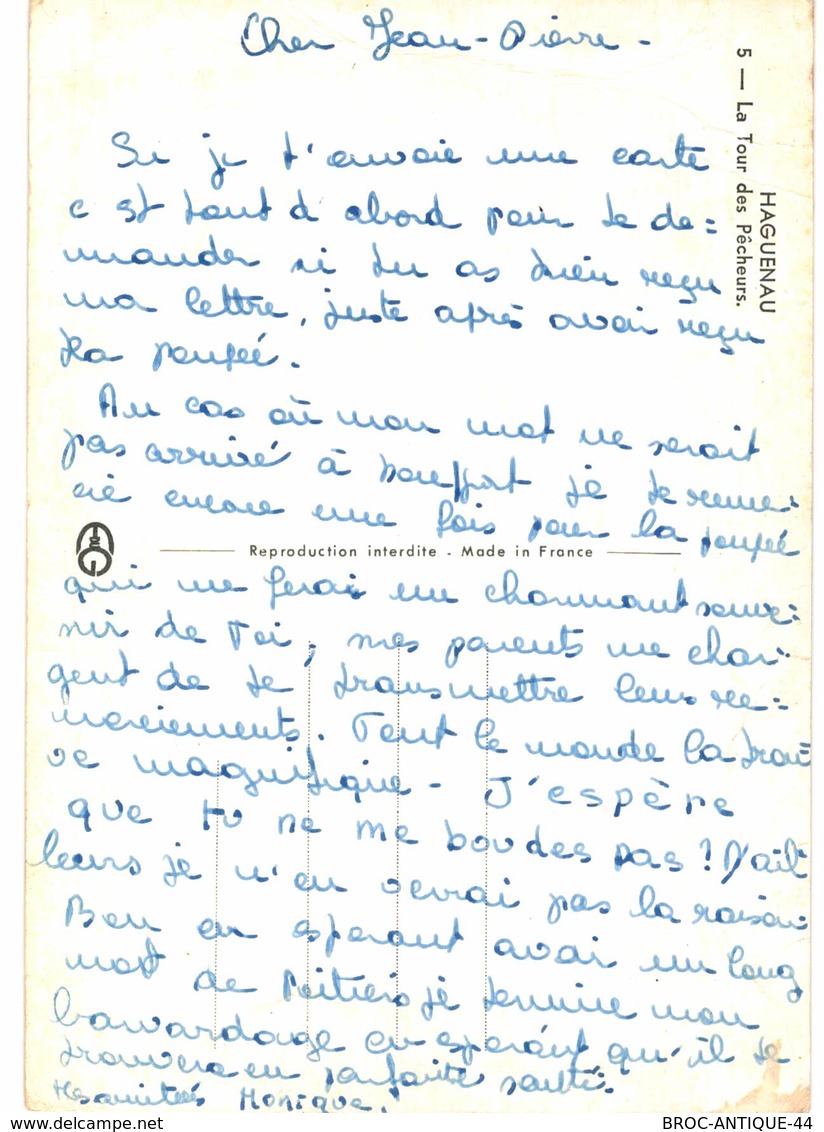 Cher Jean-Pierre -
HAGUENAU
5 — La Tour des Pêcheurs.
Si je t'envoie une carte
c est tout d abord pour te de=
mander si tu as bien reçu
ma lettre, juste après avoir reçu
ta poupée.
Au cas où mon mot ne serait
pas arrivé à je te remer=
cie encore une fois pour la poupée
Reproduction interdite - Made in France
qui me ferai un charmant souve=
nir de Toi, mes parents me char-
gent de te transmettre leurs re=
merciements. Tout le monde la trou=
ve magnifique - J'espère
que tu ne me boudes pas ? D'ail
leurs je n'en verrai pas la raison.
Bon en espérant avoir un long
mot de Poitiers je termine mon
bavardage en espérant qu'il te
trouvera en parfaite santé.
Monique.
BROC-ANTIQUE-44